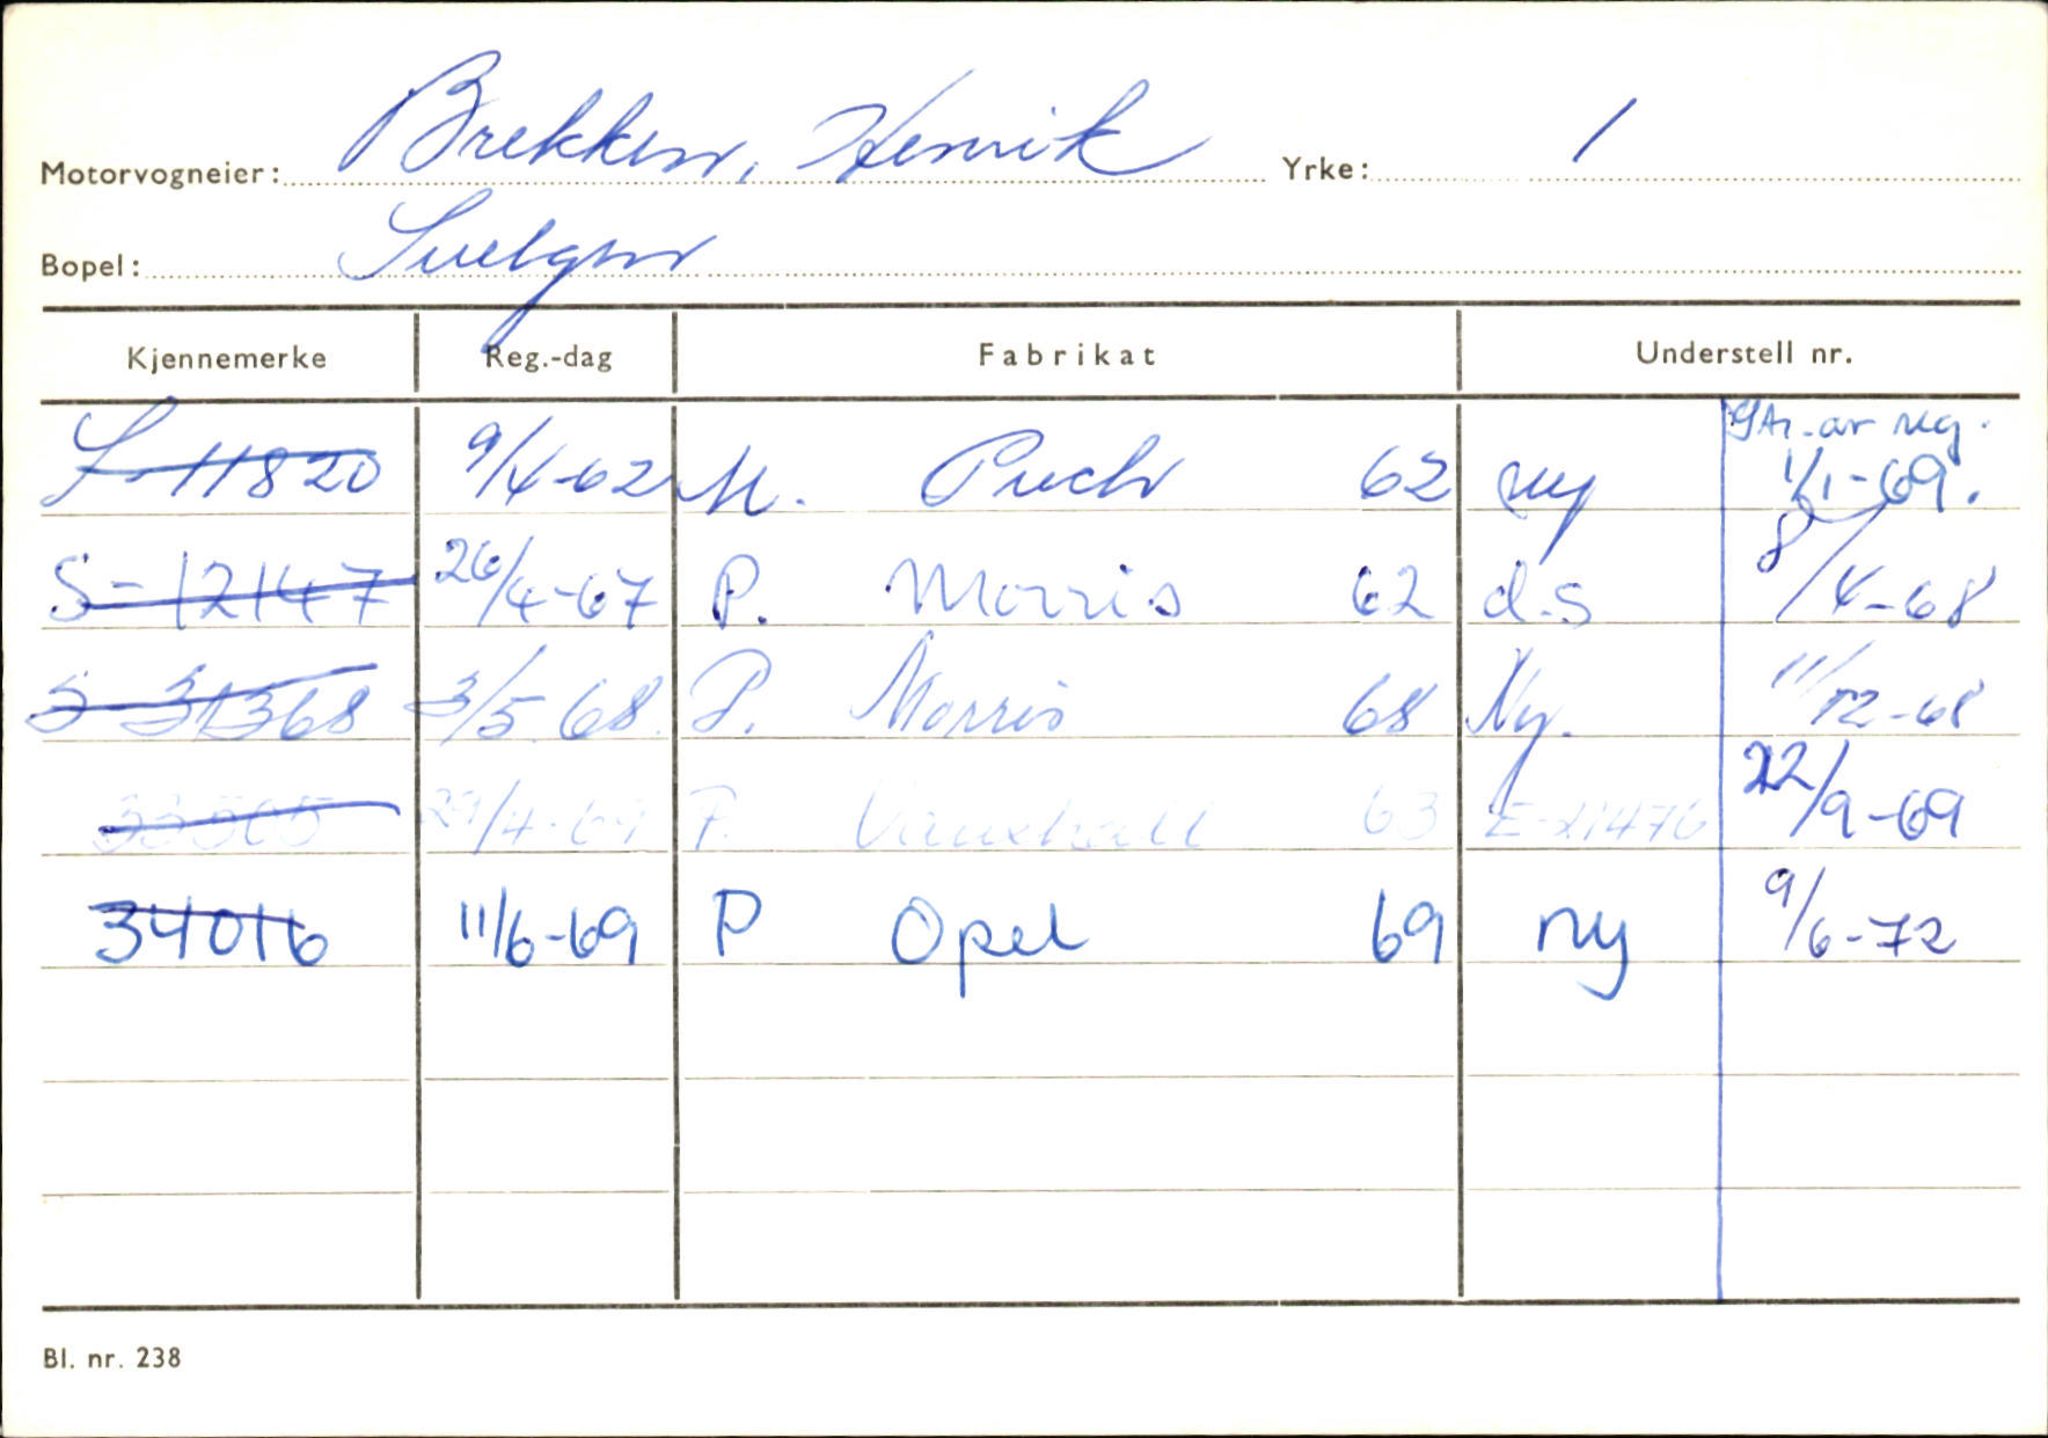 Motorvogneier: Brekken, Henrik Yrke: 1
Bopel: Svelgen
Kjennemerke Reg.-dag Fabrikat Understell nr.
av reg.
S-11820 9/4-62 M. Puch 62 ny 1/1-69.
S-12147 26/4-67 P. Morris 62 d.s 8/4-68
S-31368 3/5 68. P. Morris 68 Ny. 11/12-68
29/4-69 P. Vauxhall 63 E-21476 22/9-69
34016 11/6-69 P Opel 69 ny 9/6-72
Bl. nr. 238